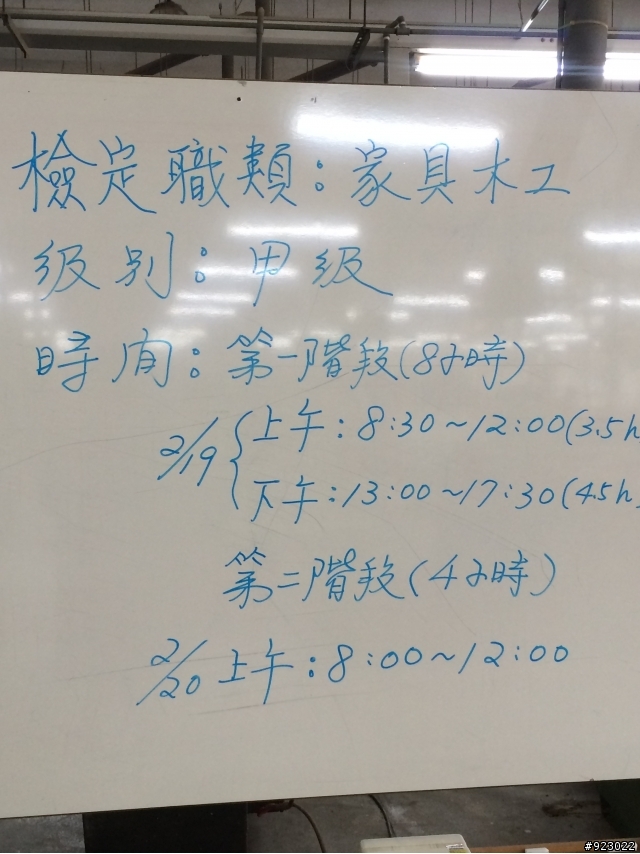 檢定職類:家具木工
级別:甲级
時间:第一階段(8小時)
2/19 上午:8:30~12:00(3.5h
下午:13:00~17:30(4.5h
第二階段(4小時)
2/20 上午:8:00~12:00
#923022